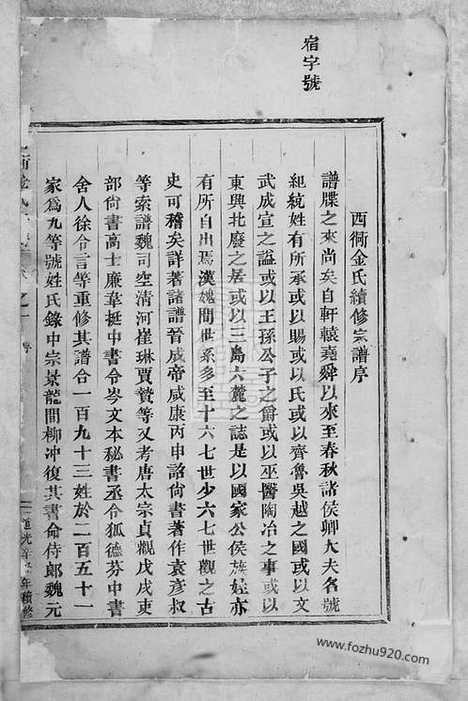 宿字號
西衕金氏續修宗譜序
譜牒之來尚矣自軒轅堯舜以來至春秋諸侯卿大夫名號
紀統姓有所承或以賜或以氏或以齊魯吳越之國或以文
武成宣之謚或以王孫公子之爵或以巫醫陶冶之事或以
東興北廢之居或以三島六麓之誌是以國家公侯族姓亦
有所自出焉漢魏間世系多至十六七世少六七世觀之古
史可稽矣詳著諸譜晉咸帝咸康丙申詔尚書著作袁彦叔
等索譜魏司空清河崔琳賈贊等又考唐太宗貞觀戊戌吏
部尚書高士廉韋挺中書令岑文本秘書丞令狐德芬中書
舍人徐令言等重修其譜合一百九十三姓於二百五十一
家為九等號姓氏錄中宗景龍間柳冲復其書命侍郎魏元
www.fozhu920.com